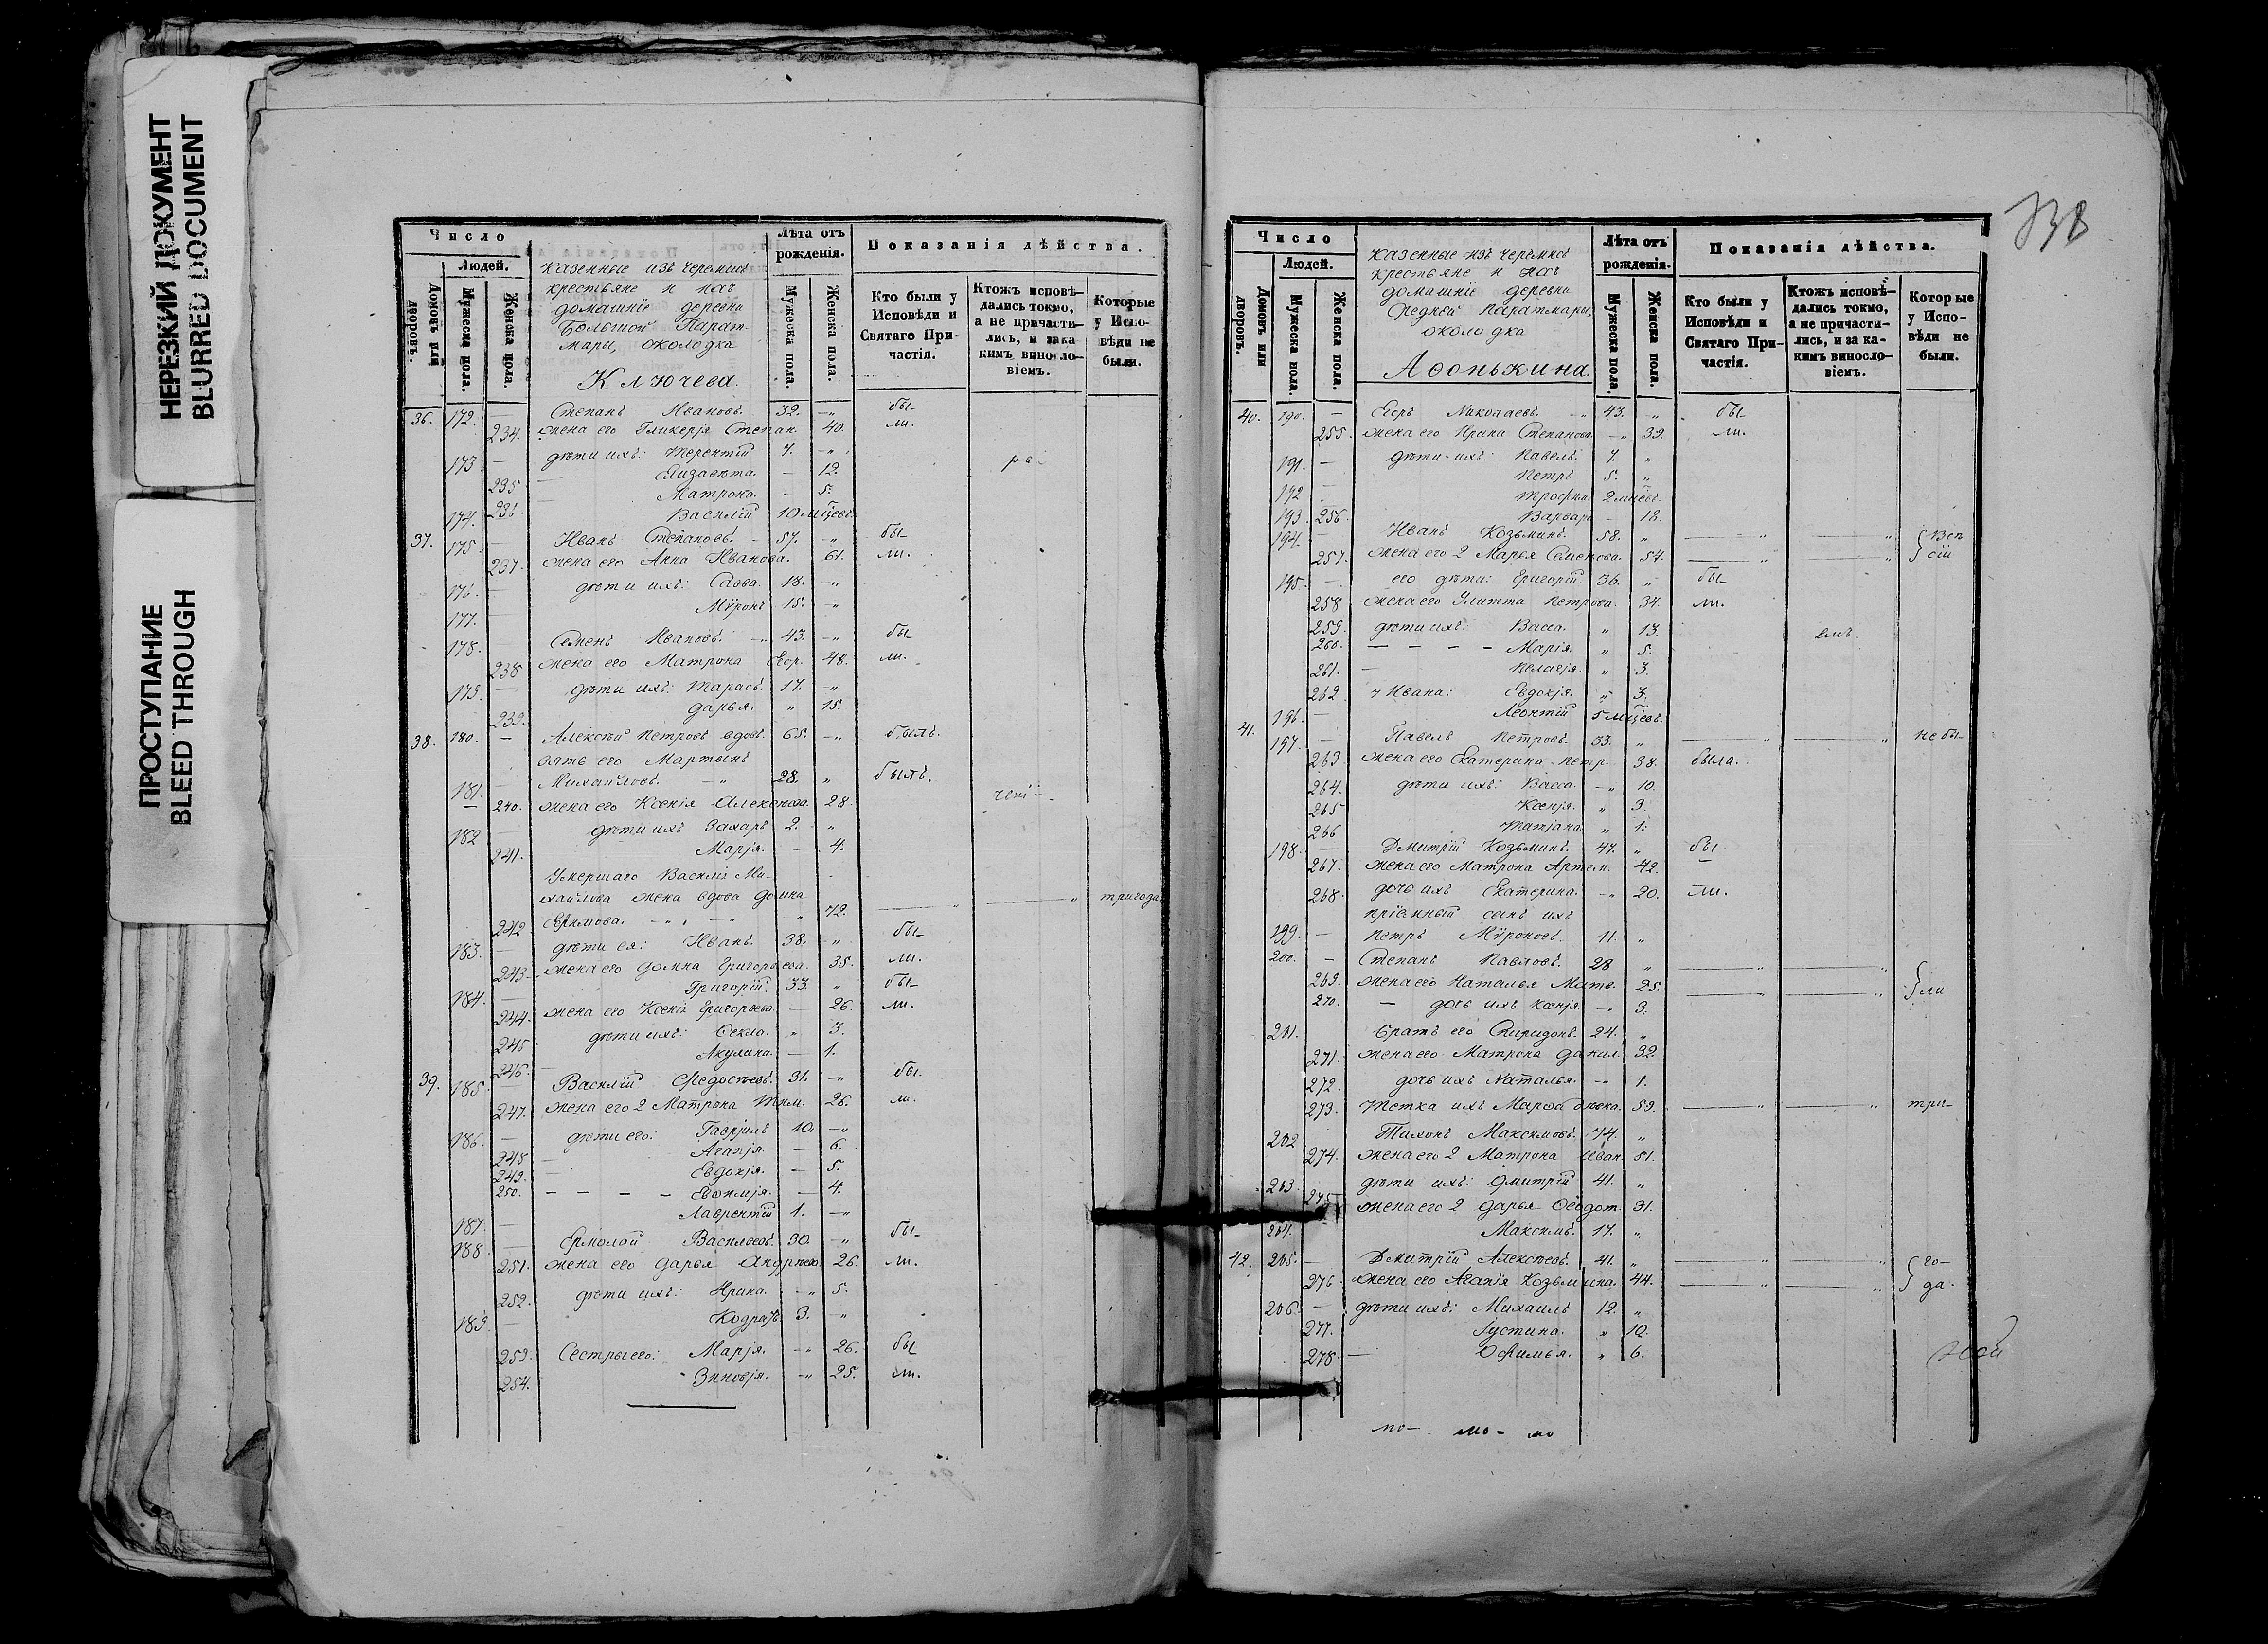 НЕРЕЗКИЙ ДОКУМЕНТ
BLURRED DOCUMENT
ПРОСТУПАНИЕ
BLEED THROUGH
Число
Людей.
Домовъ или дворовъ.
Мужеска пола.
Женска пола.
казенные изъ черемисъ
крестьяне и ихъ
домашніе деревни
Большой Парат-
мары, околодка
Ключева.
Лѣта отъ рожденія.
Мужеска пола.
Женска пола.
Показанія дѣйства.
Кто были у Исповѣди и Святаго При-частія.
Ктожъ исповѣ-дались токмо, а не причасти-лись, и за ка кимъ винносло-віемъ.
Которые у Испо-вѣди не были.
36. 172. — Степанъ Ивановъ. 32. —„ бы-
234. жена его Гликерія Степан. 40. ли.
173 — дѣти ихъ: Терентій 7. —„
235 Елизавета. — 12.
236. Матрона. - 5.
174. Василій 10 мцевъ.
37. 175. — Иванъ Степановъ. - 57. —„ бы-
237. жена его Анна Иванова. 61. ли.
176. — дѣти ихъ: Савва. 18. —„
177. — Мѵронъ 15. —„
178. — Семенъ Ивановъ. 43. —„ бы-
238 жена его Матрона Егор. 48. ли.
179. — дѣти ихъ: Тарасъ. 17. —„
239. Дарья. „ 15.
38. 180. — Алексѣй Петровъ вдов. 65. —„ былъ.
зять его Мартынъ
181. Михайловъ. —„ 28. „ былъ.
240. жена его Ксенія Алексѣева. 28.
182 — дѣти ихъ Захаръ 2. „
241. Марія. — 4.
Умершаго Василія Ми-
хайлова жена вдова Домна
242 Ефимова. „ 72. — „ — „ тригода
183. — дѣти ея: Иванъ. 38. —„ бы-
243. жена его Домна Григорьева. 35. ли.
184. — Григорій. 33. „ бы-
244. жена его Ксенія Григорьева — 26. ли.
245 дѣти ихъ: Секла. „ 3.
246. Акулина. — 1.
39. 185. Василій Федосѣевъ. 31. —„ бы.
247. жена его 2 Матрона Тим. 26. ли.
186. — дѣти его: Гавріилъ 10. —„
248 Агапія. — 6.
249. Евдокія. — 5.
250. — — — — Евфимія. — 4.
187. — Лаврентій 1. —„
188. — Ермолай Васильевъ. 30. —„ бы-
251. жена его Дарья Андрѣева. 26. ли.
252. дѣти ихъ: Ирина. —„ 5.
189. — Кодратъ 3. —„
253. Сестры его: Марія. —„ 26. бы-
254. Зиновія. —„ 25. ли.
Число
Людей.
Домовъ или дворовъ.
Мужеска пола.
Женска пола.
казенные изъ черемисъ
крестьяне и ихъ
домашніе деревни
Средней Паратмары,
околодка
Аѳонькина.
Лѣта отъ рожденія.
Мужеска пола.
Женска пола.
Показанія дѣйства.
Кто были у Исповѣди и Святаго При-частія.
Ктожъ исповѣ-дались токмо, а не причасти-лись, и за ка-кимъ винносло-віемъ.
Которые у Испо-вѣди не были.
40. 190. — Егоръ Николаевъ. 43. —„ бы-
255. жена его Ирина Степанова. —„ 39. ли.
191. — дѣти ихъ: Павелъ. 7. „
192 — Петръ 5. „
193. Трофим. 2 мцевъ.
256. Варвара — 18.
194. — Иванъ Козьминъ. 58. „ — „ — „
257. жена его 2 Марья Семенова. 54. — „ — „
195. — его дѣти: Григорій. 36. „ бы-
258 жена его Улитта Петрова. 34. ли.
259. дѣти ихъ: Васса. „ 13.
260. — — — — Марія. „ 5.
261. — Пелагія. „ 3.
262. у Ивана: Евдокія. „ 3.
196. — Леонтій 5 мцевъ.
41. 197. — Павелъ Петровъ. 33. „ — „ — „ не бы-
263 жена его Екатерина Петр. 38. была.
264. дѣти ихъ: Васса. —„ 10.
265 Ксенія. „ 3.
266 Татіана. „ 1.
198. — Дмитрій Козьминъ. 47. „ бы-
267. жена его Матрона Артем. 42.
268. дочь ихъ Екатерина. —„ 20. ли.
пріемный сынъ ихъ
199. — Петръ Мѵроновъ. 11. „
200. — Степанъ Павловъ. 28 „ — „ — „
269. жена его Наталья Матв. 25. — „ — „ ли
270. — дочь ихъ Ксенія. —„ 3.
201. братъ его Спиридонъ. 24. „
271. жена его Матрона Данил. 32.
272. дочь ихъ Наталья. —„ 1.
273. Тетка ихъ Марѳа дѣвка. 59. — „ — „ три-
202 Тихонъ Максимовъ. 74. „
274. жена его 2 Матрона Иван. 51.
203. дѣти ихъ: Дмитрій 41. „
275 жена его 2 Дарья Ѳедот. 31.
204. Максимъ. 17. „
42. 205. — Дмитрій Алексѣевъ. 41. „ — „ — „ го-
276. жена его Агапія Козьмина. 44. — „ — „ да.
206. — дѣти ихъ: Михаилъ 12. „
277. Іустина. „ 10.
278. — Офимья. „ 6.